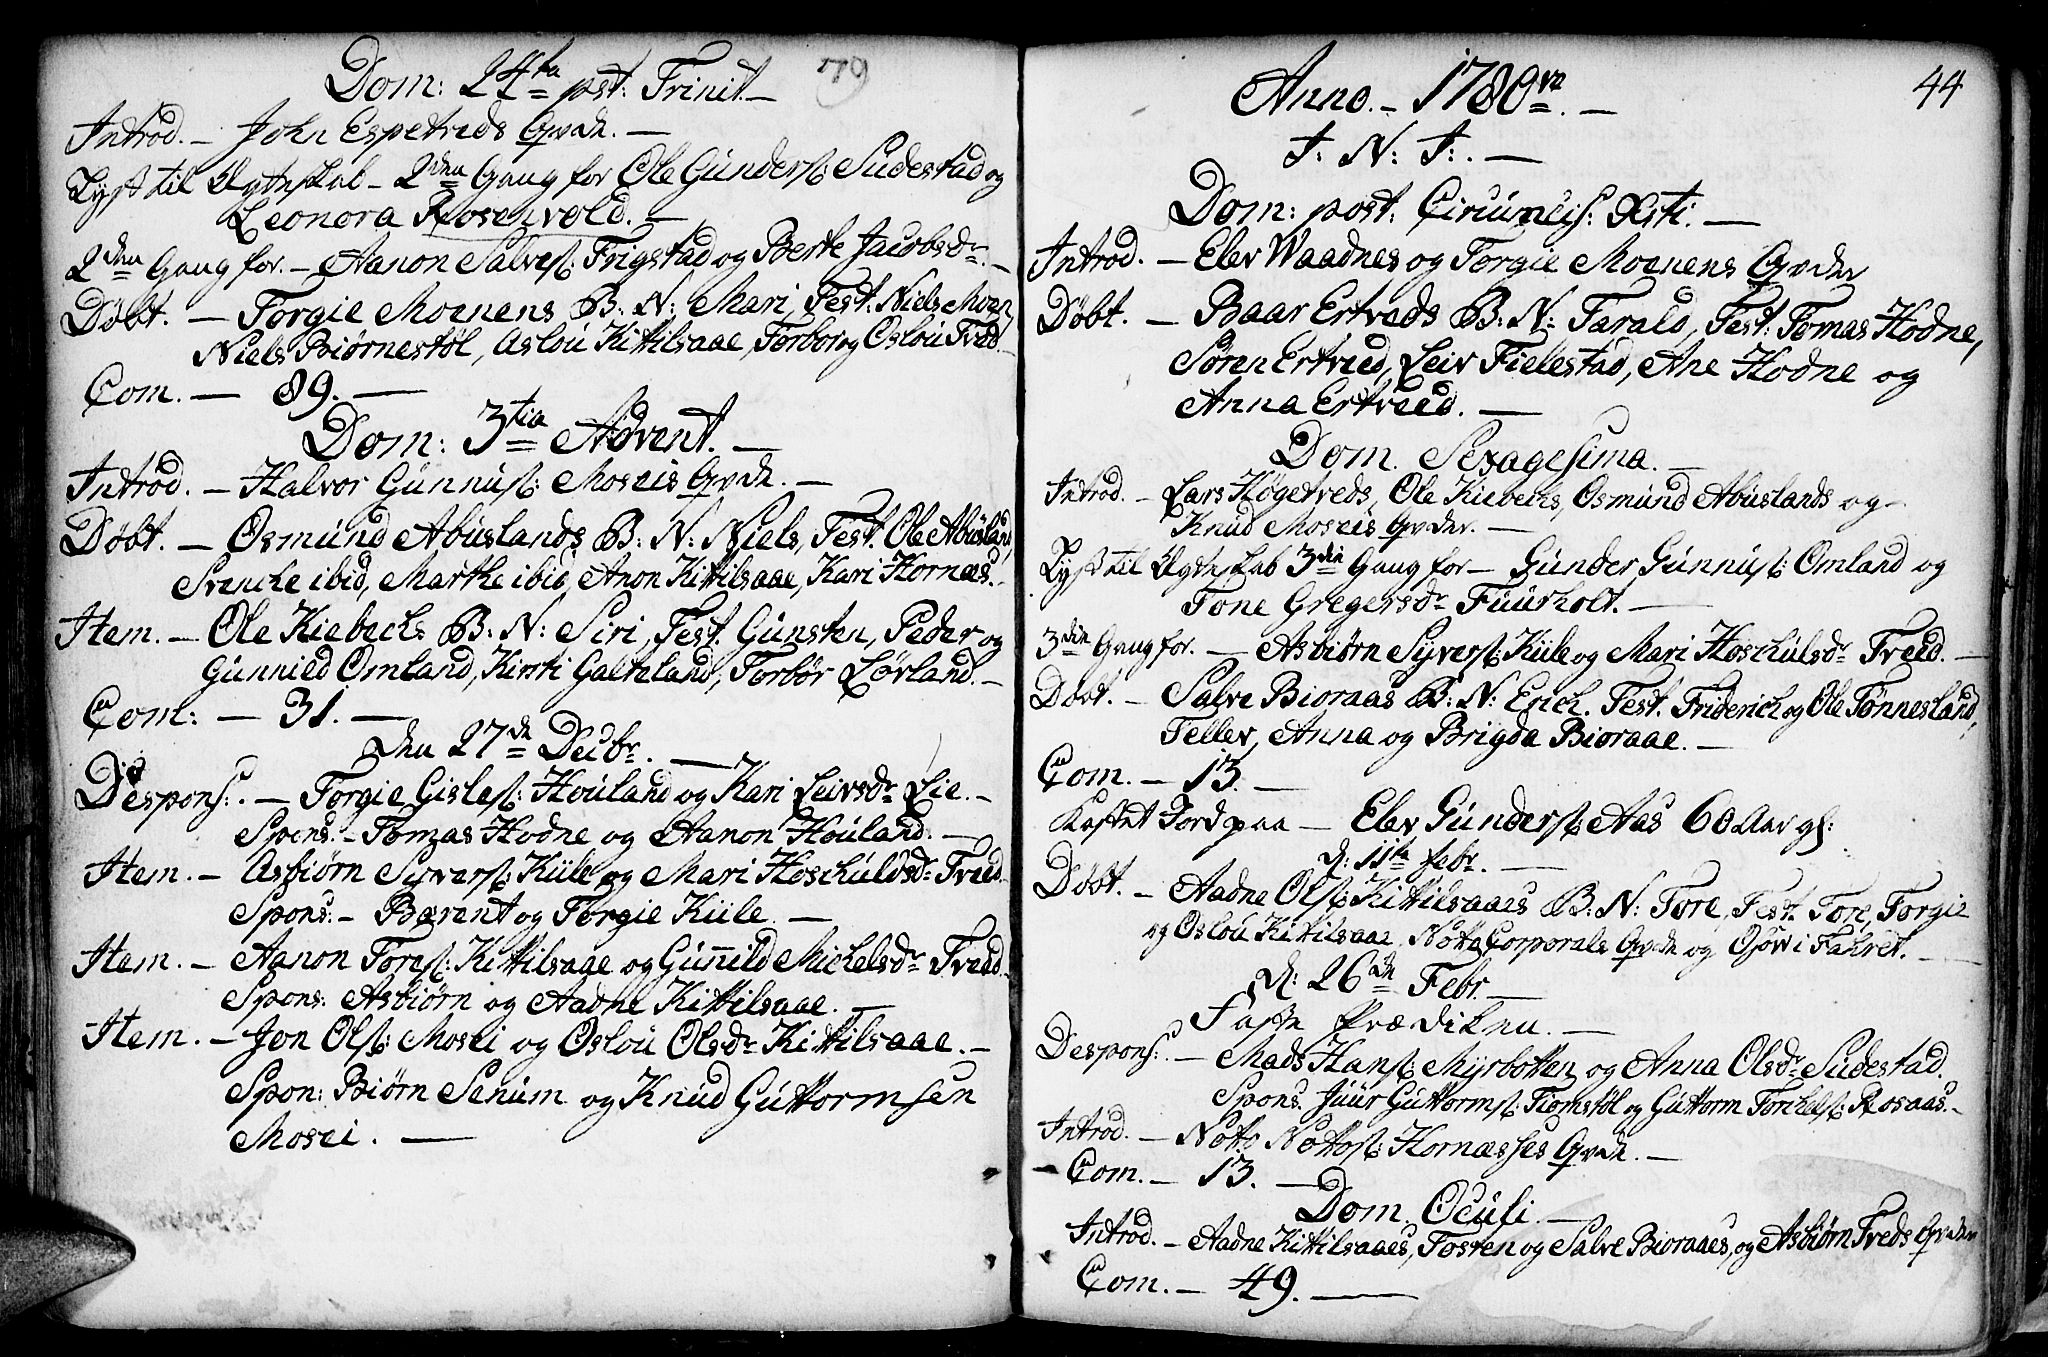 Dom: 24ta pst: Trinit. — 79
Introd. — John Espetveds Qvde. —
Lyst til Ægteskab — 2den Gang for Ole Gúnders: Sudestad og
Leonora Rosenvold. —
2den Gang for. — Aanon Salves: Frigstad og Berte Jacobsdr. —
Døbt. — Torgie Moenens B: N: Mari, Test: Niels Moen,
Niels Biørnestøl, Asloú Kittilsaae, Torbor og Osloú Tved. —
Com. — 89. —
Dom: 3tia Advent. —
Introd. — Halvor Gúnnús: Moseis Qvde. —
Døbt. — Osmúnd Abúslands B: N: Niels, Test. Ole Abúsland,
Svenche ibid, Marthe ibid, Anon Kittilsaae, Kari Hornæs. —
Item. — Ole Kiebechs B: N: Siri, Test. Gúnsten, Peder og
Gúnnied Omland, Kirsti Galteland, Torbør Løvland. —
Com: — 31. —
den 27de Decbr. —
Despons:. — Torgie Gisles: Hoúland og Kari Leivsdr Lie. —
Spons. — Tomas Hodne og Aanon Hoúland. —
Item. — Asbiørn Syvers: Kiile og Mari Hoschúldsdr Tveed.
Spons: — Bærent og Torgie Kiile. —
Item. — Aanon Tores: Kittilsaae og Gúnnild Michelsdr Tveed.
Spons: Asbiørn og Aadne Kittilsaae. —
Item. — Jon Ols: Mosei og Osloú Olsdr Kittilsaae. —
Spon: Biørn Senúm og Knúd Gúttormsen
Mosei. —
44
Anno. — 1780vo. —
I: N: I:. —
Dom: post: Circúmcis: Xsti. —
Introd. — Elev Waadnes og Torgie Moenens Qvder
Døbt. — Baar Ertveds B: N: Tarald, Test: Tomas Hodne,
Søren Ertveed, Leiv Fielestad, Ane Hodne og
Anna Ertveed. —
Dom. Sexagesima. —
Introd. — Lars Høgetveds, Ole Kiebechs, Osmúnd Abúslands og —
Knúd Moseis Qvder. —
Lyst til Ægteskab 3die Gang for — Gúnder Gúnnús: Omland og
Tone Gregersdr Fúúrholt. —
3die Gang for. — Asbiørn Syvers: Kiile og Mari Hoschúlsdr Tveed. —
Døbt. — Salve Bioraas B: N: Erich. Test. Friderich og Ole Tønnesland,
Tellev, Anna og Brigde Bioraae. —
Com. — 13. —
Kastet Jord paa — Elev Gúnders: Aas 60 Aar gl:
d: 11ta febr. —
Døbt. — Aadne Ols: Kittilsaaes B: N: Tore, Test. Tore, Torgie
og Osloú Kittilsaae, Notto Corporals Qvde og Gjøw i Faúret. —
d: 26de Febr. —
Faste Prædiken. —
Despons:. — Mads Hans: Myrbotten og Anna Olsdr Súdestad.
Spons. Júúr Gúttorms: Fiomstøl og Gúttorm Torchels: Rosaas. —
Introd. — Notto Nottos: Hornæsses Qvde. —
Com. — 13. —
Dom. Ocúli. —
Introd. — Aadne Kittilsaaes, Tosten og Salve Bioraaes, og Asbiørn Tveds Qvder
Com. — 49. —